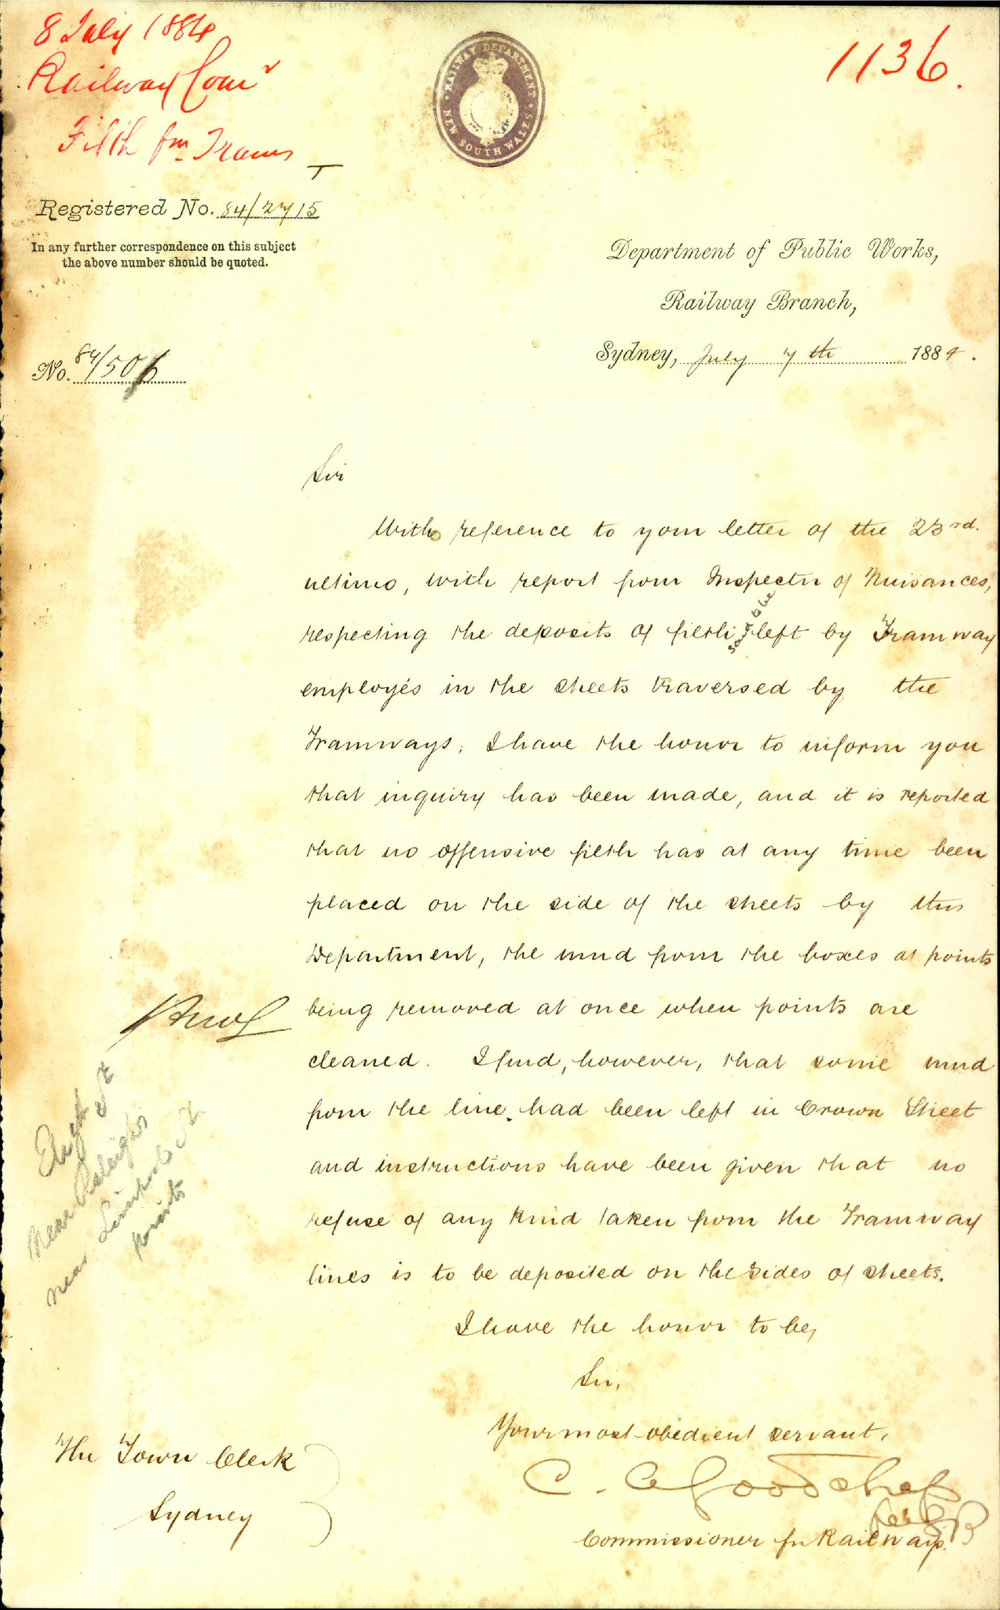 8 July 1884
Railway Comr
Filth fm Trams
1136.
RAILWAY DEPARTMENT
NEW SOUTH WALES.
Registered No. 84/2715
In any further correspondence on this subject
the above number should be quoted.
Department of Public Works,
Railway Branch,
No. 84/506
Sydney, July 7th 1884.
Sir
With reference to your letter of the 23rd.
ultimo, with report from Inspector of Nuisances,
respecting the deposits of filth said to be left by Tramway
employés in the streets traversed by the
Tramways, I have the honor to inform you
that inquiry has been made, and it is reported
that no offensive filth has at any time been
placed on the side of the streets by this
Department, the mud from the boxes at points
being removed at once when points are
cleaned. I find, however, that some mud
from the line had been left in Crown Street
and instructions have been given that no
refuse of any kind taken from the Tramway
lines is to be deposited on the sides of streets.
I have the honor to be,
Sir,
Your most obedient servant,
Commissioner for Railways.
The Town Clerk
Sydney
near Raleighs
near
points